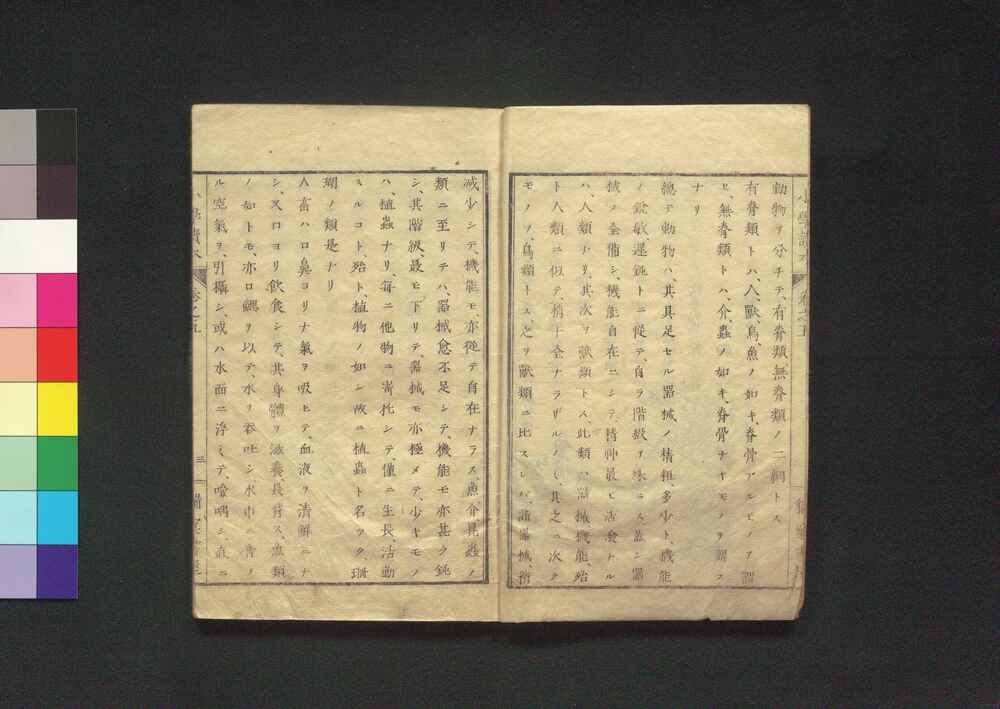 動物ヲ分チテ、有脊類無脊類ノ二綱トス
有脊類トハ、人、獸、鳥、魚ノ如キ、脊骨アルモノヲ謂
ヒ、無脊類トハ、介、蟲ノ如キ、脊骨ナキモノヲ謂フ
ナリ
總テ動物ハ、其具足セル器械ノ精粗多少ト、機能
ノ鋭敏遲鈍トニ從テ、自ラ階級ヲ殊ニス蓋シ器
械ヲ全備シ、機能自在ニシテ、精神最モ活發ナル
ハ、人類ナリ、其次ヲ獸類トス此類ハ器械機能、殆
ト人類ニ似テ、稍十全ナラザルノミ、其之ニ次ク
モノヲ、鳥類トス之ヲ獸類ニ比スレバ、諸器械、稍
减少シテ、機能モ、亦從テ自在ナラス、魚介昆蟲ノ
類ニ至リテハ、器械愈不足シテ、機能モ亦甚タ鈍
シ、其階級、最モ下リテ、器械モ亦極メテ、少キモノ
ハ、植蟲ナリ、毎ニ他物ニ寄托シテ、僅ニ生長、活動
スルコト、殆ト、植物ノ如シ故ニ植蟲ト名ヅク、珊
瑚ノ類是ナリ
人畜ハロ鼻ヨリナ氣ヲ吸ヒテ、血液ヲ清鮮ニナ
シ、又口ヨリ飲食シテ、其身體ヲ滋養、長育ス、魚類
ノ如トモ、亦口鰓ヲ以テ、水ヲ吞吐シ、水中ニ含ノ
ル空氣ヲ、引攝シ、或ハ水面ニ浮ミテ、噞喁シ、直ニ
小學讀本
卷之五
三